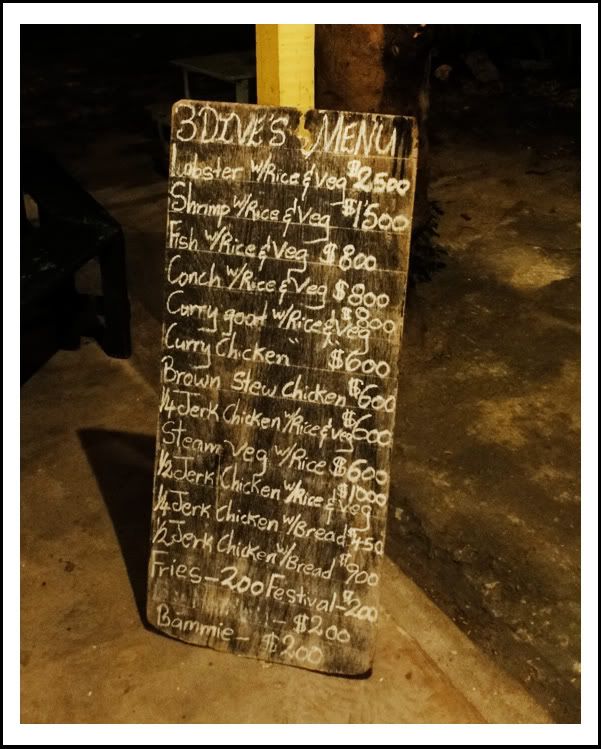 3 DIVE'S MENU
Lobster w/Rice & Veg $2500
Shrimp w/Rice & Veg $1500
Fish w/Rice & Veg $800
Conch w/Rice & Veg $800
Curry goat w/Rice & Veg $800
Curry Chicken " " $600
Brown Stew Chicken $600
1/4 Jerk Chicken w/Rice & Veg $600
Steam Veg w/Rice $600
1/2 Jerk Chicken w/Rice & Veg $1000
1/4 Jerk Chicken w/Bread $450
1/2 Jerk Chicken w/Bread $900
Fries - 200 Festival - $200
- $200
Bammie - $200